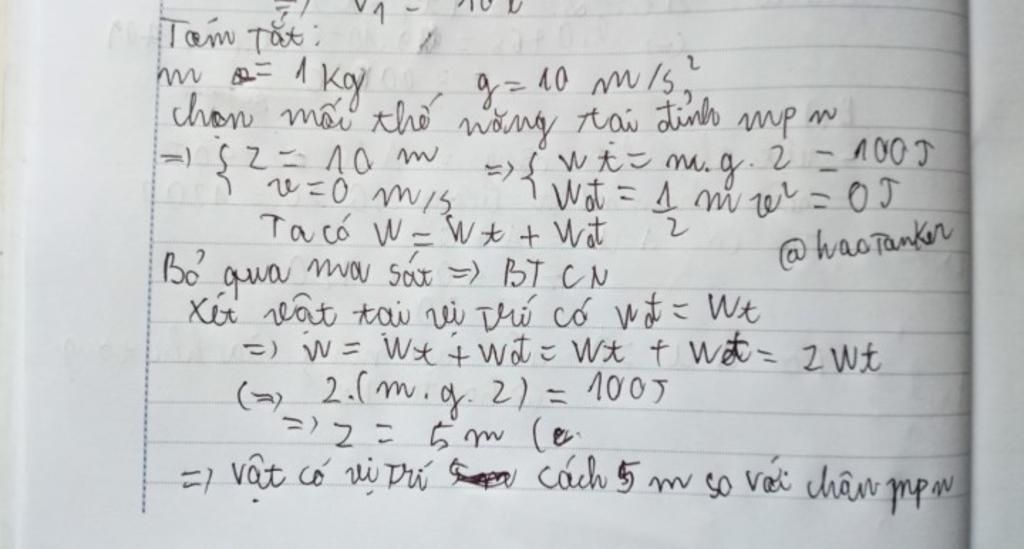 => V1 = 10
Tóm tắt:
m = 1 kg g = 10 m/s²
chọn mốc thế năng tại đỉnh mpn
=> { z = 10 m => { Wt = m.g.z = 100J
v = 0 m/s Wđ = 1/2 mv² = 0J
Ta có W = Wt + Wđ
@haoTanker
Bỏ qua ma sát => BT CN
Xét vật tại vị trí có Wđ = Wt
=> W = Wt + Wđ = Wt + Wđ = 2Wt
(=> 2.(m.g.z) = 100J
=> z = 5 m (
=> Vật có vị trí cách 5 m so với chân mpn